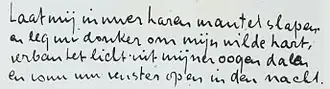 Laat mij in uwer haren mantel slapen
en leg uw donker om mijn wilde hart,
verban het licht uit mijner oogen dalen
en kom uw venster open in den nacht.